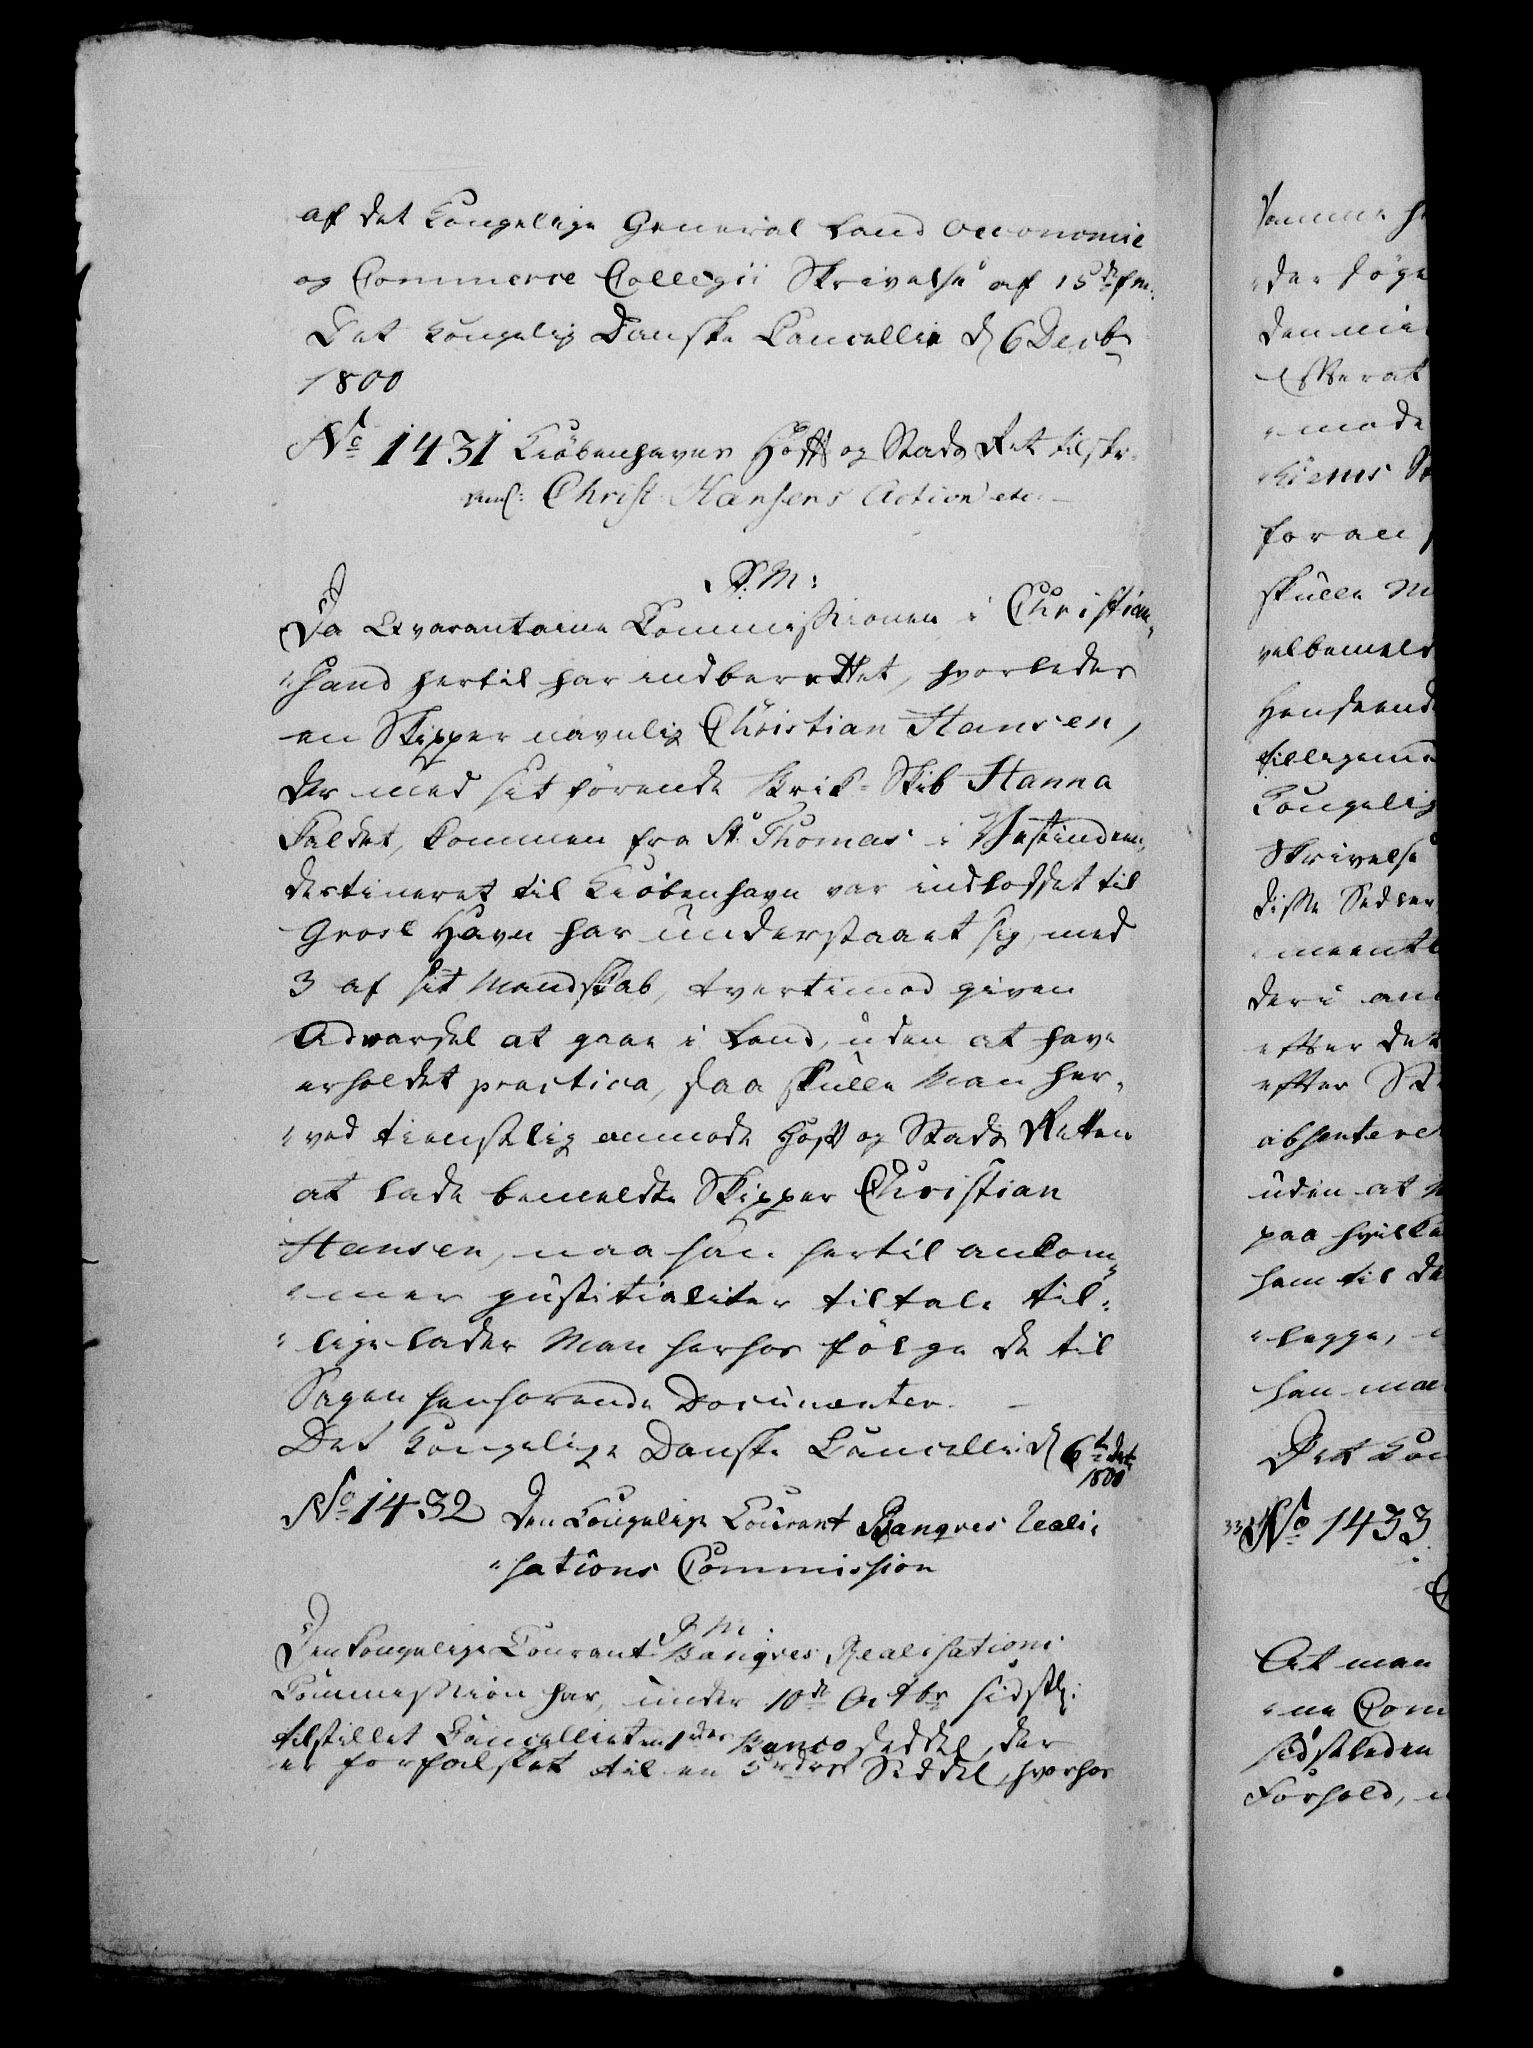 af det Kongelige General Land Oeconomie
og Commerce Collegii Skrivelse af 15de f. M.
Det Kongelig Danske Cancellie d 6 Decbr
1800
No 1431 Kiöbenhavns Hoff og Stads Ret tilskr:
anl: Christ. Hansens Action etc.
P. M:
Da Qvarantaine Commissionen i Christian-
"sand hertil har indberettet, hvorledes
en Skipper navnlig Christian Hansen,
der med sit förende Brik-Skib Hanna
kaldet, kommen fra St. Thomas i Vestindien,
destineret til Kiöbenhavn var indlodset til
Grose Havn har understaaet sig, med
3 af sit Mandskab, tvertimod given
Advarsel at gaae i Land, uden at have
erholdet practica, saa skulle Man her-
"ved tienstlig anmode Hoff og Stads Retten
at lade bemeldte Skipper Christian
Hansen, naar han hertil ankom-
"mer justitialiter tiltale til-
"lige lader Man herhos fölge de til
Sagen henhörende Documenter. -
Det Kongelige Danske Cancellie d 6te Decbr
1800
No 1432 Den Kongelige Courant Banqves Reali-
"sations Commission
P. M.
Den Kongelige Courant Banqves Realisations
Commission har, under 10de Octbr sidstl:
tilstillet Cancelliet en 1 rdrs Banco Seddel, der
er forfalsket til en 5 rdrs Seddel, hvorhos
samme
der söge
den
Efterat
"mode

foran
skulle M
velbemeld

tilligemed
Kongelig
Skrivelse
disse Sedler
"meent
deri
efter det
efter
absentere
uden at
paa hvilken
ham til de
"legge,
han maa
Det Kon
33 No 1433
At man
"ne Com
sidstleden
Forhold,